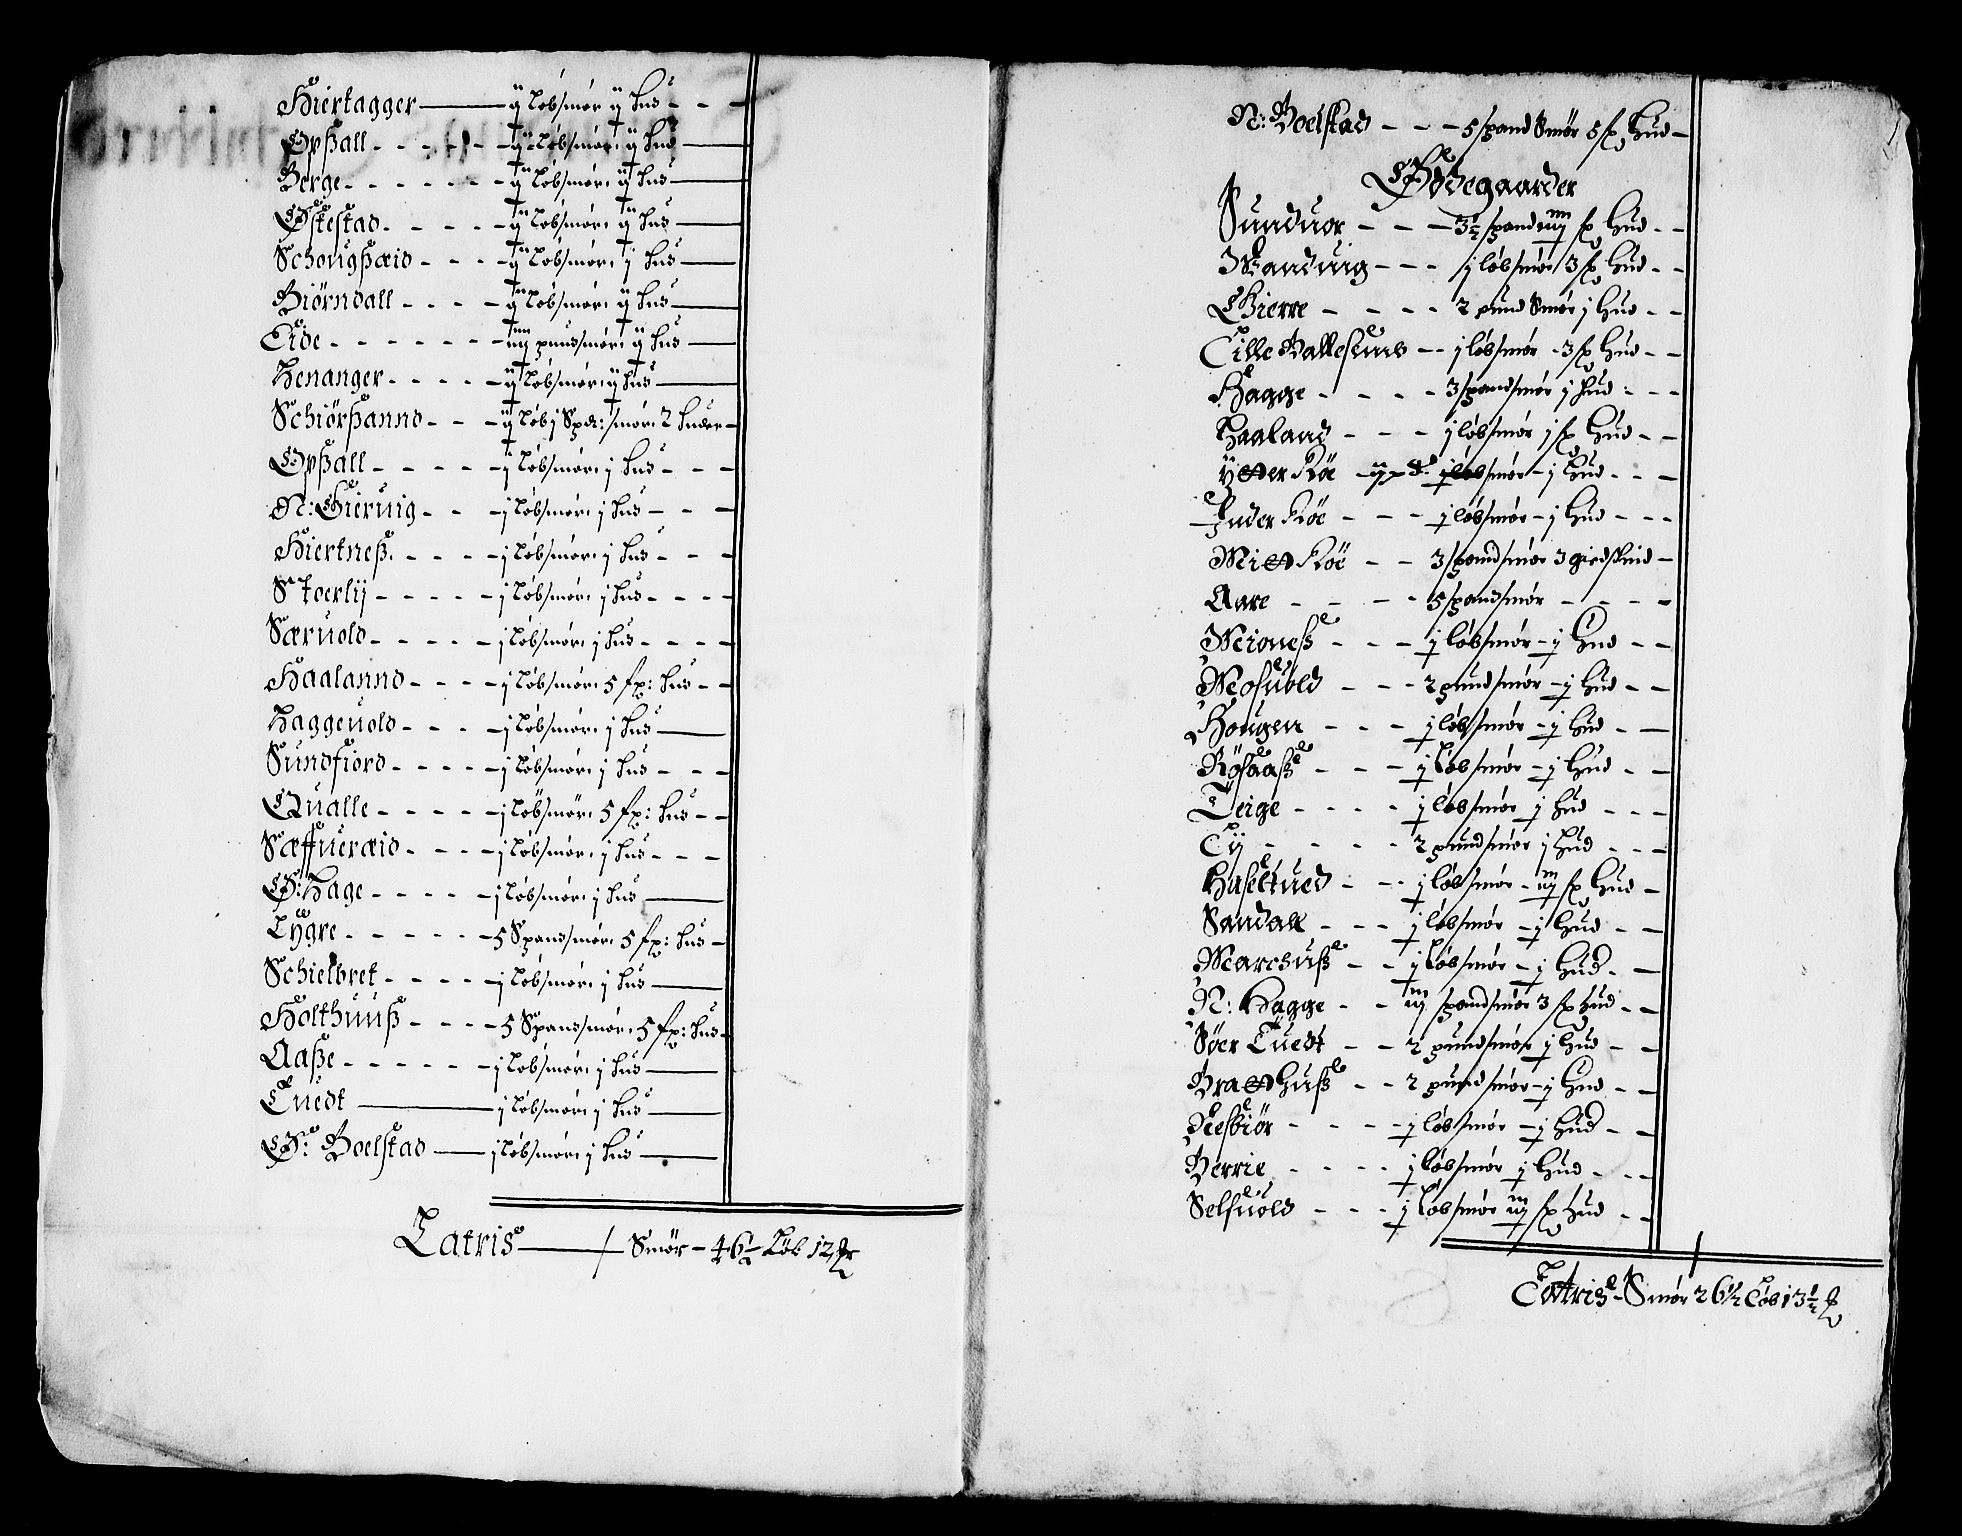 Hiertagger — ij løb smør ij hud - - -
Opsall - - - - - - ij løb smør: ij hud —
Berge - - - - - - - ij løb smør: ij hud —
Østestad - - - - - ij løb smør: ij hud —
Schougsæid - - - - ij løb smør: j hud —
Biørndall - - - - ij løb smør: ij hud —
Eide - - - - - - - iiij pund smør: ij hud —
Henanger - - - - - ij løb smør: ij hud —
Schiørsannd - - - ij løb j Spd: smør: 2 huder -
Opsall - - - - - j løb smør: j hud - - -
N: Gieruig - - - j løb smør: j hud - - -
Hiertnes - - - - j løb smør: j hud - - -
Stoerlij - - - - - j løb smør: j hud - - - -
Særuold - - - - - j løb smør: j hud - - - -
Haalannd - - - - j løb smør: 5 sp: hud - -
Haggeuold - - - - j løb smør: j hud —
Sundfiord - - - - - j løb smør: j hud - - -
Qualle - - - - - j løb smør: 5 sp: hud - -
Sæffueræid - - - - j løb smør: j hud - - -
Ø: Hage - - - - - j løb smør: j hud —
Lygre - - - - - - 5 Spand smør: 5 sp: hud -
Schielbret - - - - j løb smør: j hud —
Holthuuss - - - - 5 Spand smør: 5 sp: hud -
Aasse - - - - - - j løb smør: j hud —
Tuedt — j løb smør: j hud —
Ø: Boelstad — j løb smør: j hud —
Latris — Smør - 46½ Løb 12
N: Boelstad - - - 5 spand Smør 5 sp Hud -
Ødegaarder
Sunduor - - - 3½ spand iiij sp Hud - -
Wanduig - - - j løb smør 3 sp Hud - -
Gierre - - - - 2 pund Smør j Hud - -
Lille Balles - - j løb smør - 3 sp Hud - -
Hagge - - - - 3 spand smør j Hud - - -
Haaland - - - j løb smør j sp Hud - -
Ytter Røe - j løb smør - j Hud - - -
Inder Røe - - - j løb smør - j Hud - - -
Mitt Røe - - 3 spand smør 3 giedskind -
Aare - - - - 5 spand smør - - - -
Mioness - - - j løb smør - j Hud - -
Mosuold - - - 2 pund smør - j Hud - -
Hougen - - - j løb smør - j Hud - -
Røsaass - - - j løb smør - j Hud - -
Teige - - - - j løb smør j Hud - - -
Ly - - - - - 2 pund smør j Hud - - -
Huseltued - - - j løb smør - iiij sp Hud -
Sandall - - - j løb smør - j Hud - -
Marchuss - - j løb smør - j Hud - -
N: Hagge - - iiij spand smør 3 sp Hud - -
Søer Tuedt - - 2 pund smør j Hud - -
Bratthuss - - 2 pund smør - j Hud - -
Nesbiør - - - - j løb smør - j Hud - -
Berrie - - - - j løb smør j Hud - - -
Selsuold - - - j løb smør iiij sp Hud - -
Latris - Smør 26½ Løb 13½